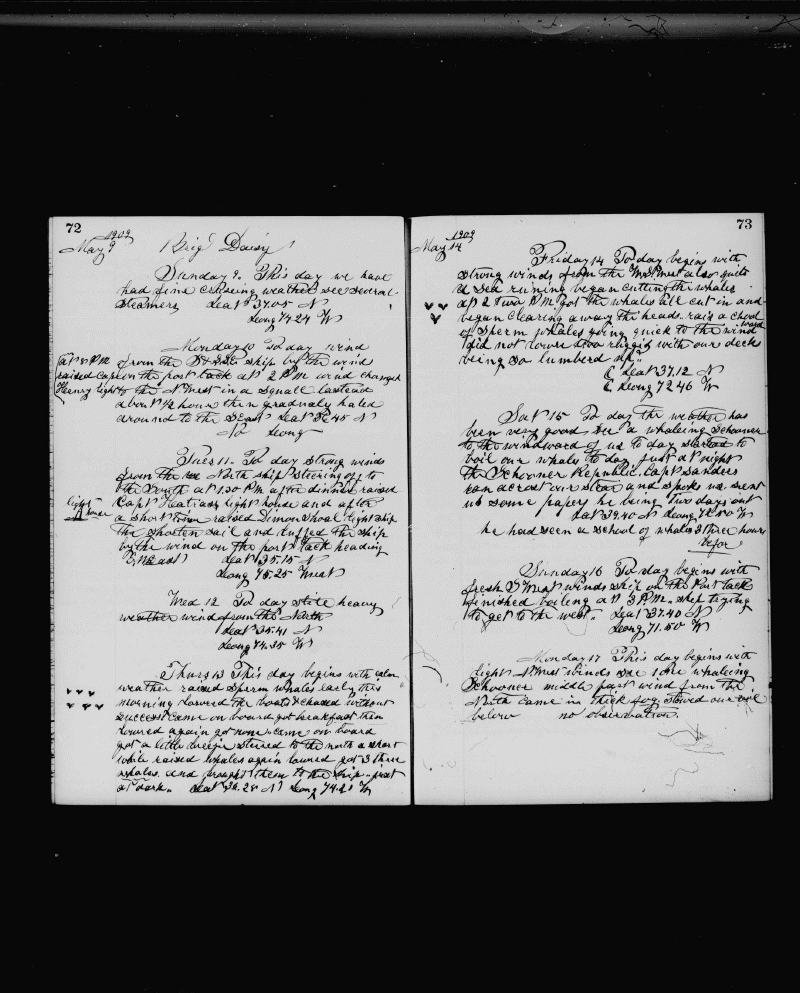 72
1909
May 9 Brig Daisy
Sunday 9. This day we have
had fine cruising weather see several
steamers Leat 37.05 N
Leong 74.24 W
Monday 10 To day wind
from the ship by the wind
at 8 P.M.
raised Cape
Henry light
on the port tack at 2 P.M wind changed
to the N West in a squall lasted
about 1/2 hour then gradualy haled
around to the S East Leat 36.45 N
No Leong
Tues 11. To day strong winds
from the North ship steering off to
the South at 1.30 P.M after dinner raised
light house
Cape Hatiass light house and after
a short time raised Dimon Shoal light ship
the shorten sail and luffed the ship
by the wind on the port tack heading
Leat 35.15 N
Leong 75.25 West
Wed 12 To day still heavy
weather wind from the North
Leat 35.41 N
Leong 74.35 W
Thurs 13 This day begins with calm
weather raised sperm whales early this
morning lowered the boats & chased without
success came on board got breakfast then
lowered again got none came on board
got a little breeze steered to the north a short
while raised whales again lowered got 3 three
whales and brought them to the ship just
at dark. Leat 36.28 N Leong 74.21 W
73
1909
May 14
Friday 14 To day begins with
strong winds from the also quite
a sea runing began cutting the whales
at 2 two P.M got the whales all cut in and
began clearing away the heads. rais a chool
of sperm whales going quick to the wind ward
did not lower too rugged with our deck
being so lumberd up
C Leat 37.12 N
C Leong 72.46 W
Sat 15 To day the weather has
been very good see a whaleing schooner
to the windward of us to day started to
boil our whale to day just at night
the Schooner Republic Capt Sanders
ran across our stern and spoke us sent
us some papers he being two days out
Leat 39.40 N Leong 72.50 W
he had seen a school of whales 3 three hours
befor
Sunday 16 To day begins with
fresh S West winds ship on the Port tack
finished boiling at 3 P.M. ship trying
to get to the west. Leat 37.40 N
Leong 71.50 W
Monday 17 This day begins with
light winds see 1 one whaleing
Schooner middle part wind from the
North came in thick fog. stowed our oil
below no observation